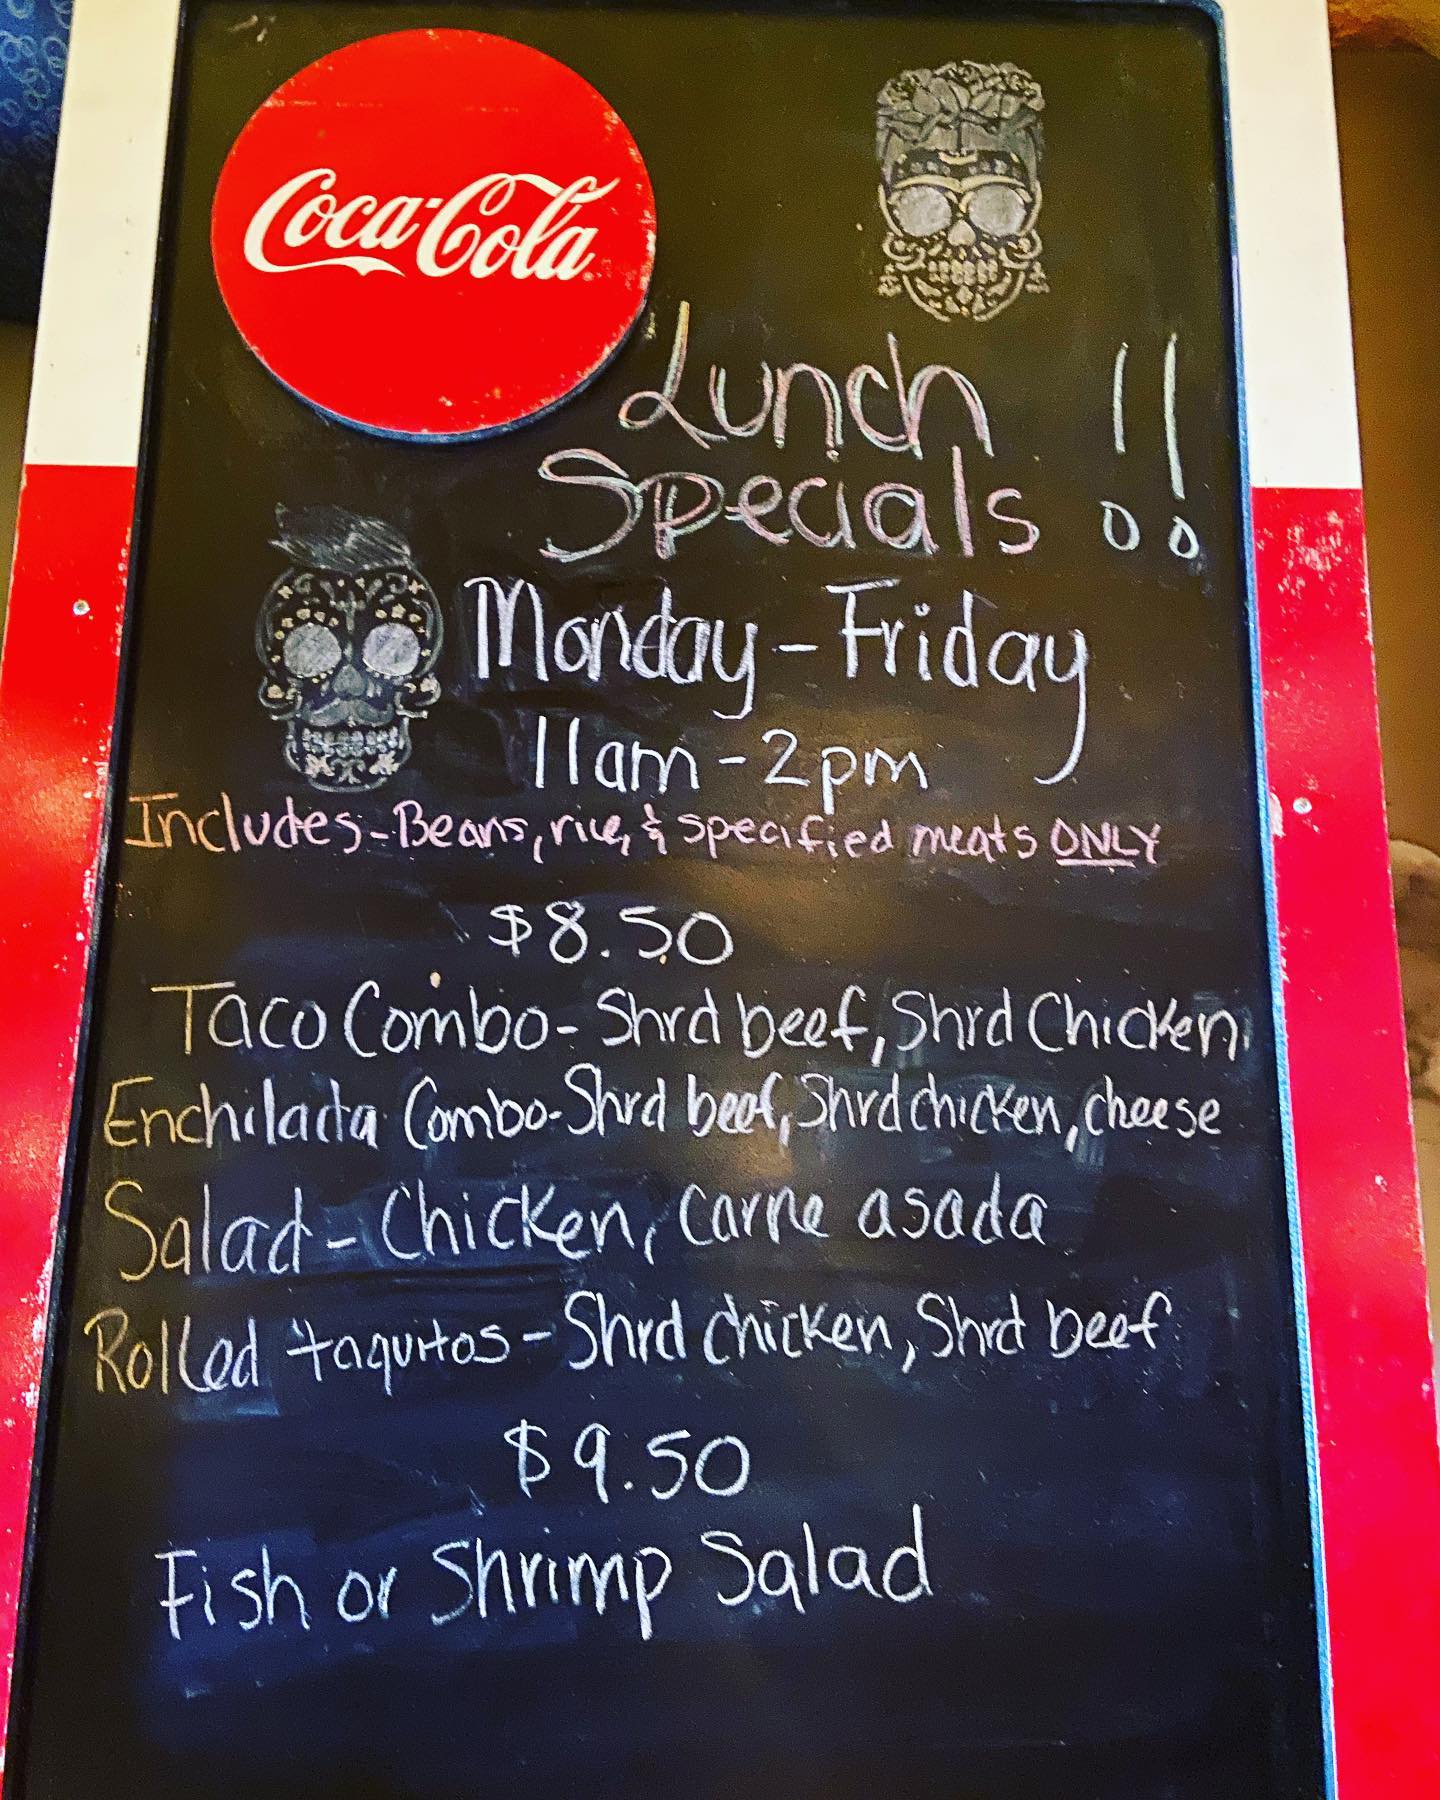 Coca-Cola
Lunch !!
Specials
Monday - Friday
11am - 2pm
Includes - Beans, rice, & specified meats ONLY
$8.50
Taco Combo - Shrd beef, Shrd Chicken
Enchilada Combo - Shrd beef, Shrd chicken, cheese
Salad - Chicken, carne asada
Rolled taquitos - Shrd chicken, Shrd beef
$9.50
Fish or Shrimp Salad